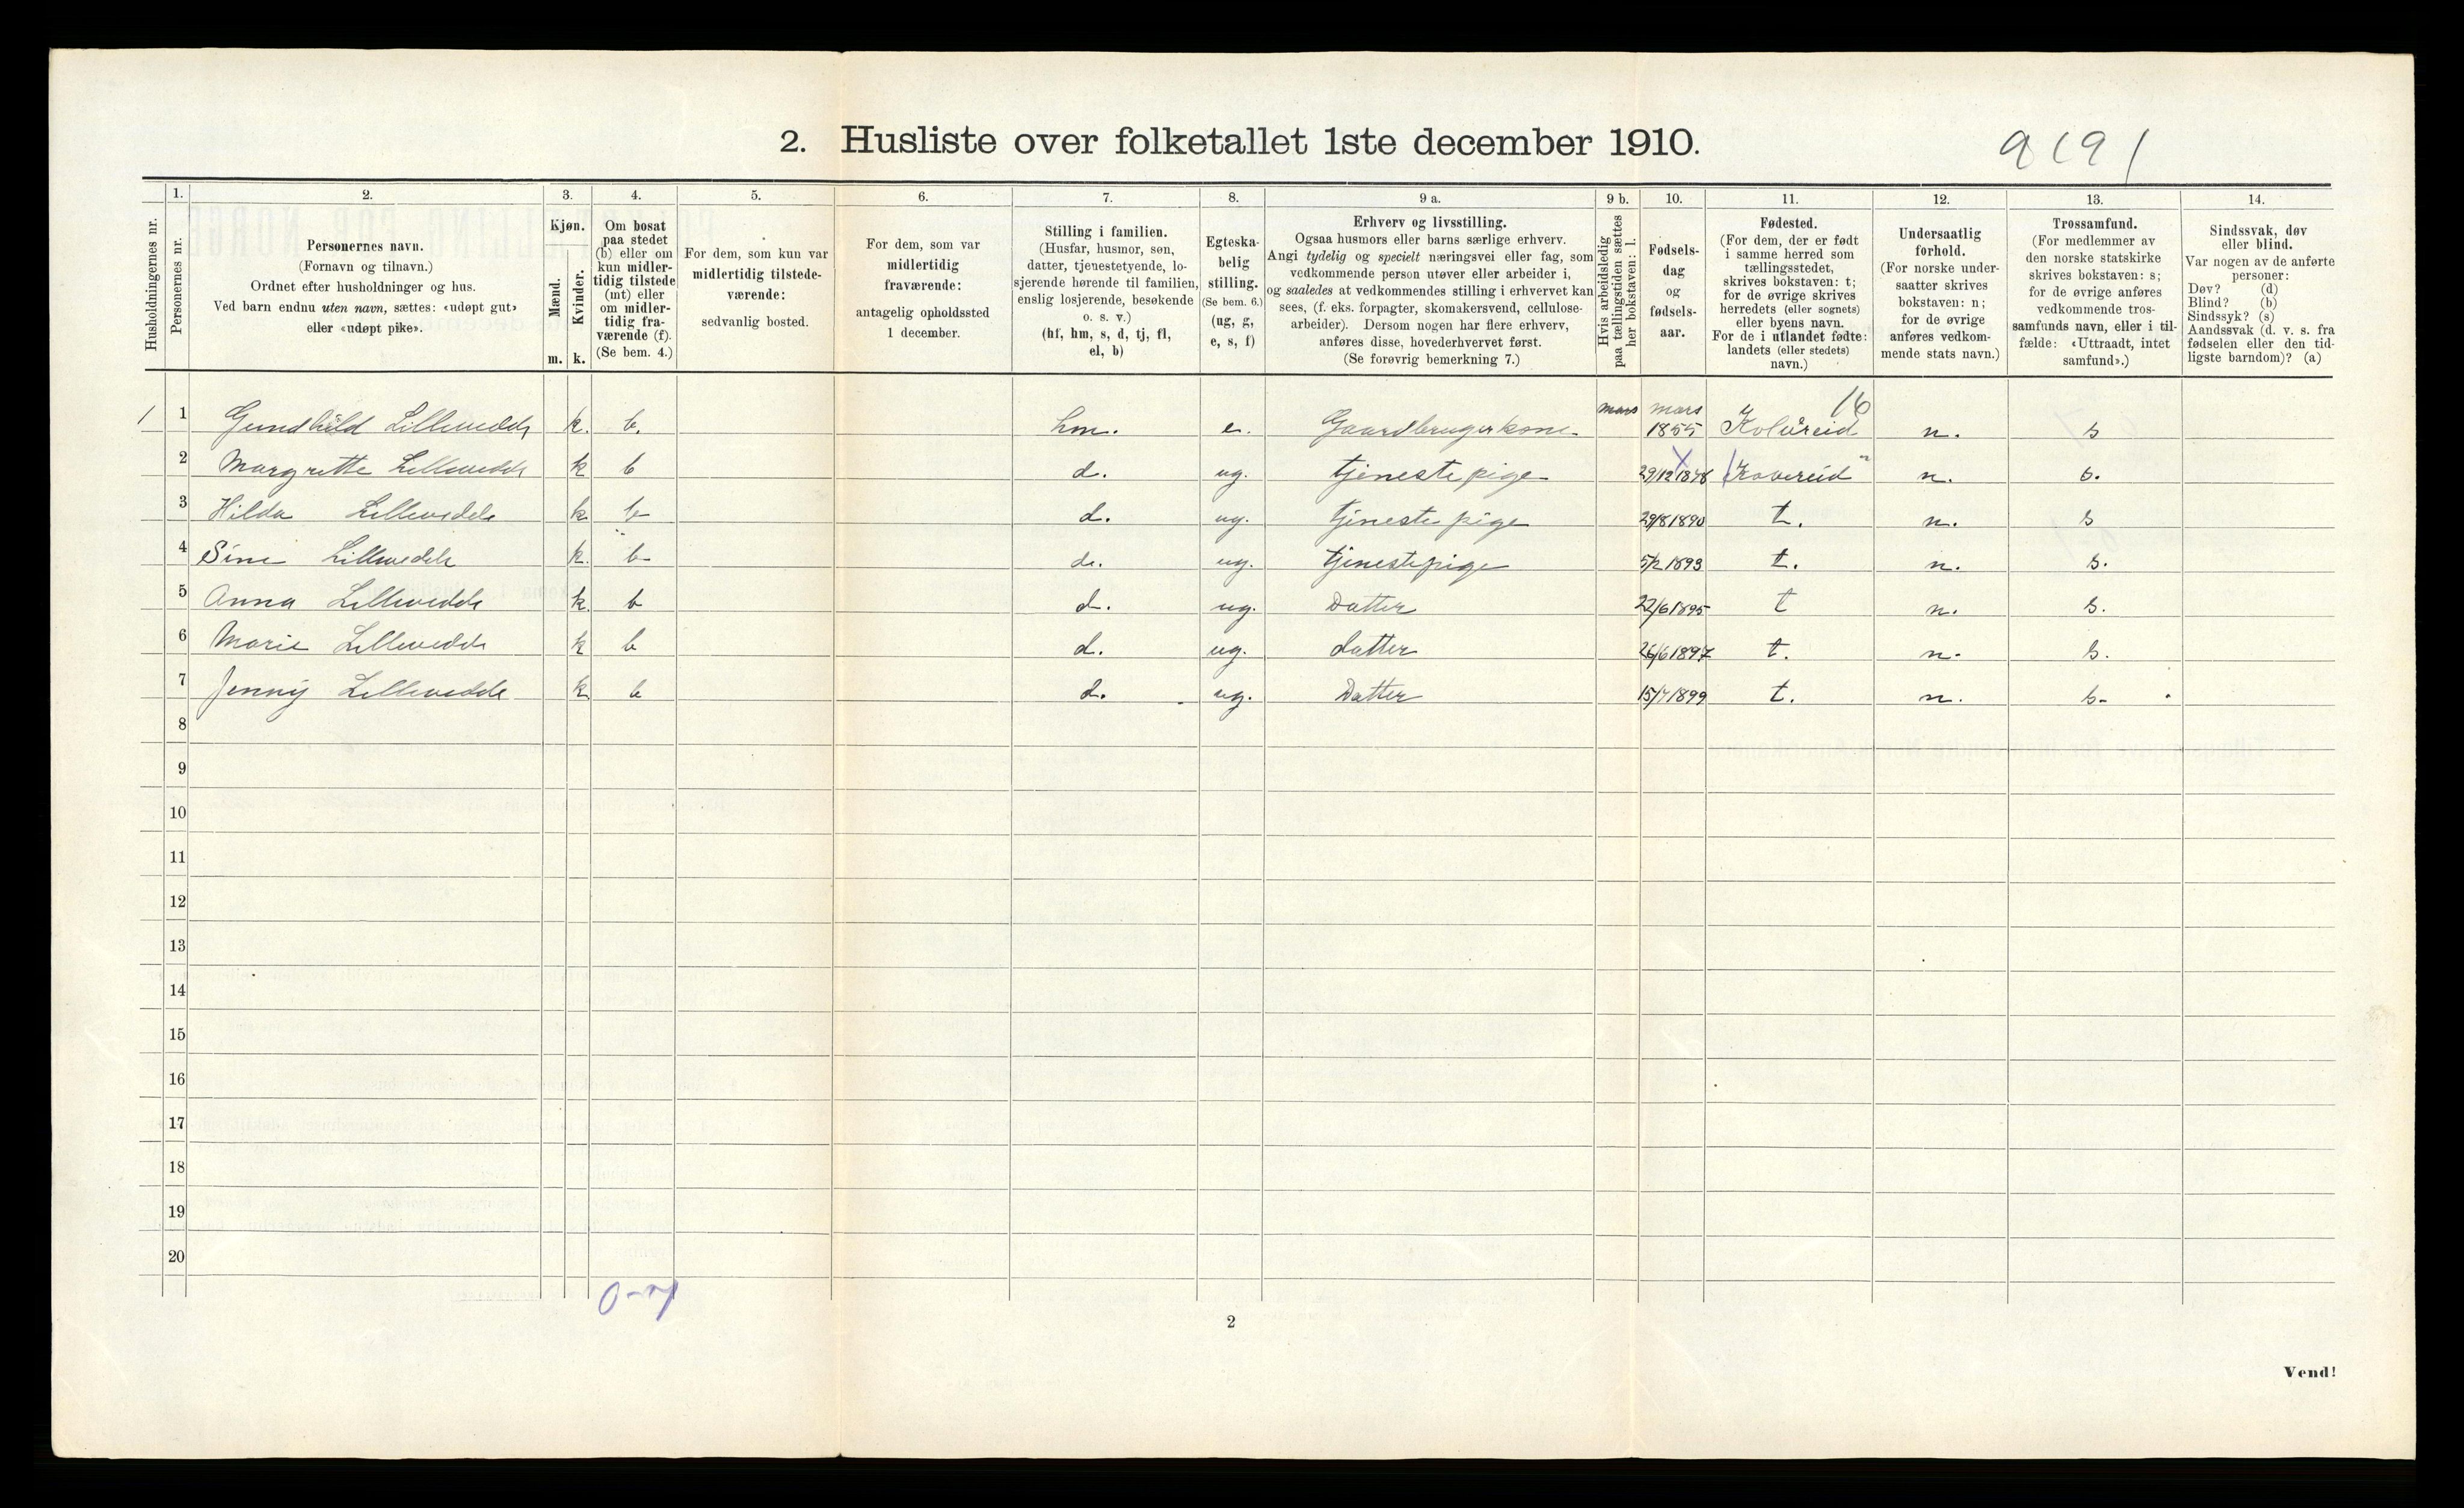 2. Husliste over folketallet 1ste december 1910.
9191
1. 2. 3. 4. 5. 6. 7. 8. 9 a. 9 b. 10. 11. 12. 13. 14.
Husholdningernes nr.
Personernes nr.
Personernes navn.
(Fornavn og tilnavn.)
Ordnet efter husholdninger og hus.
Ved barn endnu uten navn, sættes: «udøpt gut»
eller «udøpt pike».
Kjøn.
Mænd.
Kvinder.
m. k.
Om bosat
paa stedet
(b) eller om
kun midler-
tidig tilstede
(mt) eller
om midler-
tidig fra-
værende (f).
(Se bem. 4.)
For dem, som kun var
midlertidig tilstede-
værende:
sedvanlig bosted.
For dem, som var
midlertidig
fraværende:
antagelig opholdssted
1 december.
Stilling i familien.
(Husfar, husmor, søn,
datter, tjenestetyende, lo-
sjerende hørende til familien,
enslig losjerende, besøkende
o. s. v.)
(hf, hm, s, d, tj, fl,
el, b)
Egteska-
belig
stilling.
(Se bem. 6.)
(ug, g,
e, s, f)
Erhverv og livsstilling.
Ogsaa husmors eller barns særlige erhverv.
Angi tydelig og specielt næringsvei eller fag, som
vedkommende person utøver eller arbeider i,
og saaledes at vedkommendes stilling i erhvervet kan
sees, (f. eks. forpagter, skomakersvend, cellulose-
arbeider). Dersom nogen har flere erhverv,
anføres disse, hovederhvervet først.
(Se forøvrig bemerkning 7.)
Hvis arbeidsledig
paa tællingstiden sættes
her bokstaven: l.
Fødsels-
dag
og
fødsels-
aar.
Fødested.
(For dem, der er født
i samme herred som
tællingsstedet,
skrives bokstaven: t;
for de øvrige skrives
herredets (eller sognets)
eller byens navn.
For de i utlandet fødte:
landets (eller stedets)
navn.)
Undersaatlig
forhold.
(For norske under-
saatter skrives
bokstaven: n;
for de øvrige
anføres vedkom-
mende stats navn.)
Trossamfund.
(For medlemmer av
den norske statskirke
skrives bokstaven: s;
for de øvrige anføres
vedkommende tros-
samfunds navn, eller i til-
fælde: «Uttraadt, intet
samfund».)
Sindssvak, døv
eller blind.
Var nogen av de anførte
personer:
Døv? (d)
Blind? (b)
Sindssyk? (s)
Aandssvak (d. v. s. fra
fødselen eller den tid-
ligste barndom)? (a)
mars mars 16
1 1 Gundhild Lillevedde k. b. hm. e. Gaardbrugerkone. 1855 Kolvereid n. s
2 Margrette Lillevedde k b d. ug. tjenestepige 29/12 1878 Kovereid n. s.
3 Hilda Lillevedde k b d. ug. tjenestepige 29/8 1890 t. n. s
4 Sine Lillevedde k. b d. ug. tjenestepige 5/2 1893 t. n. s.
5 Anna Lillevedde k. b d. ug. Datter 22/6 1895 t n. s.
6 Marie Lillevedde k b d. ug. datter 26/6 1897 t. n. s.
7 Jenny Lillevedde k b d. ug. Datter 15/7 1899 t. n. s.
8
9
10
11
12
13
14
15
16
17
18
19
20
0-7
2
Vend!